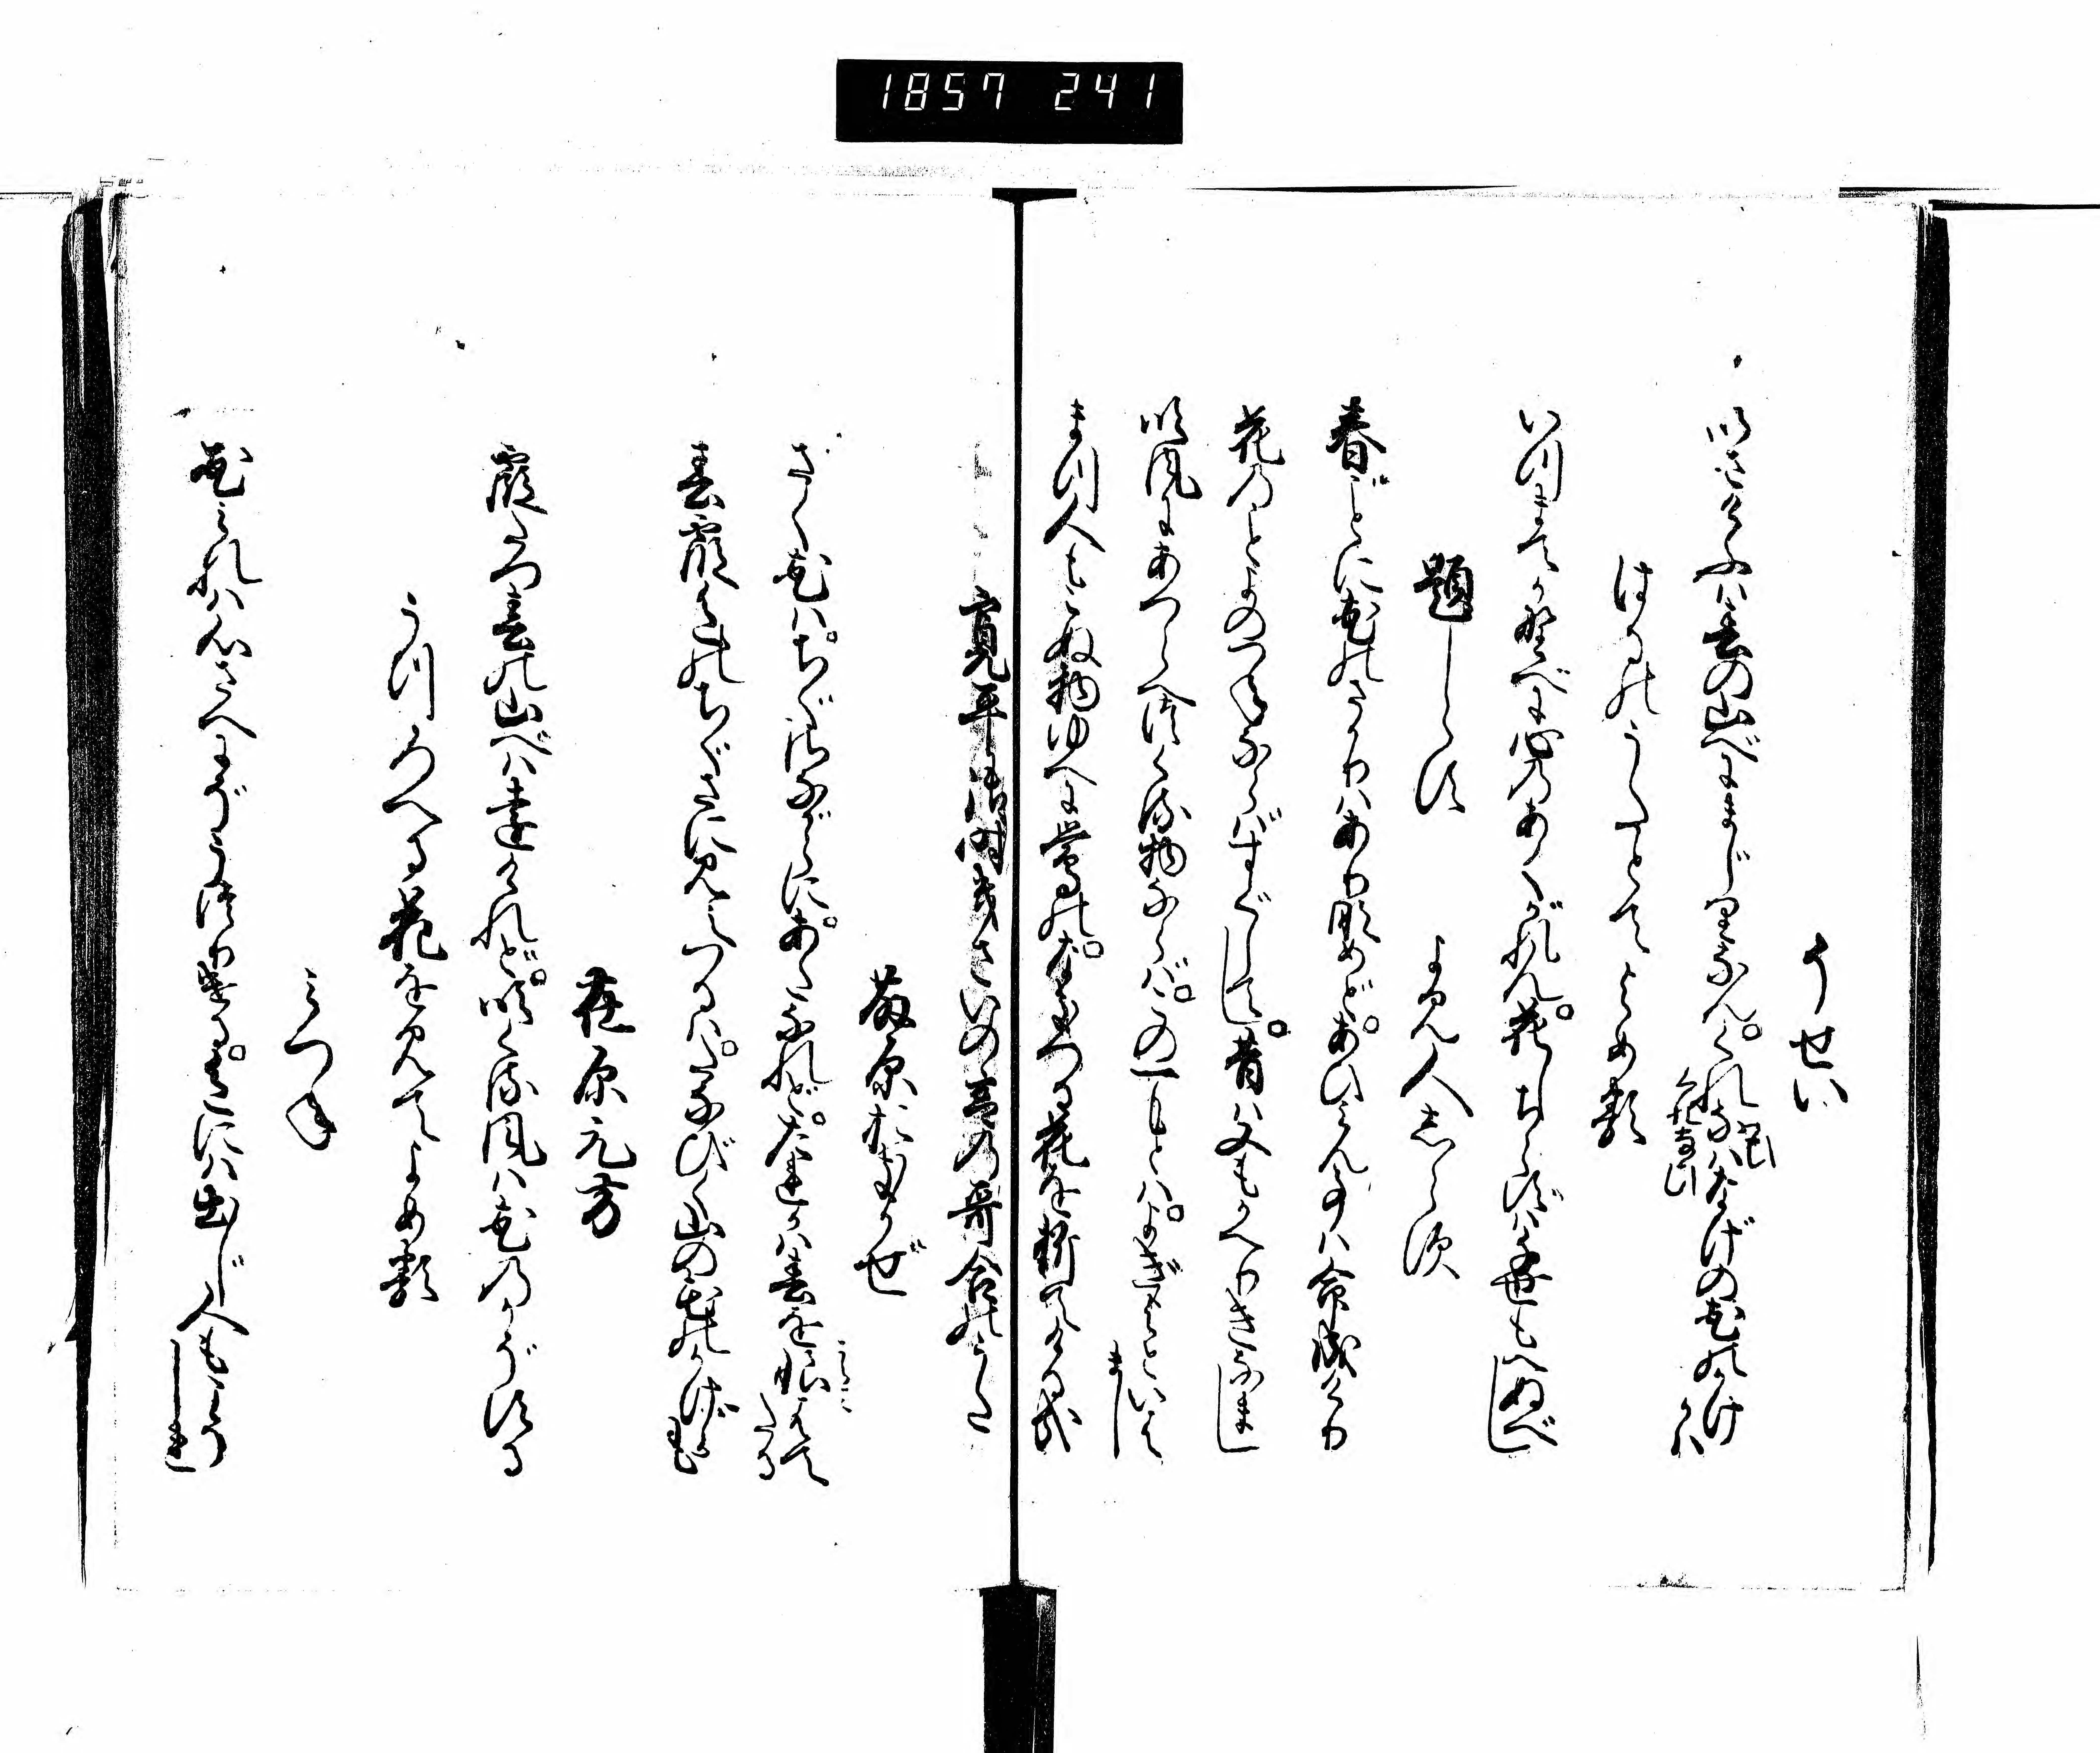 1857 241
そせい
いざけふは春の山べにまじりなん。くれなばなげの花のかげかは
はるのうたとてよめる
いつまでか野べに心のあくがれん。花しちらずは千世もへぬべし
題しらず　よみ人しらず
春ごとに花のさかりはありなめど。あひみん事は命成けり
花のごとよのつねならばすぐしてし。昔は又もかへりきなまし
吹風にあつらへつくる物ならば。この一もとはよぎよといはまし
まつ人もこぬ物ゆへに鶯の。なきつる花を折てける哉
寛平御時きさいの宮の哥合のうた
藤原おきかぜ
さく花は。ちぐさながらに。あだなれど。たれかは春を恨はてたる
春霞色のちぐさに見えつるは。たなびく山の花のかげかも
在原元方
霞たつ春の山べは遠けれど。吹くる風は花のかぞする
うつろへる花を見てよめる
みつね
花みれば心さへにぞうつりける。色には出じ人もこそしれ